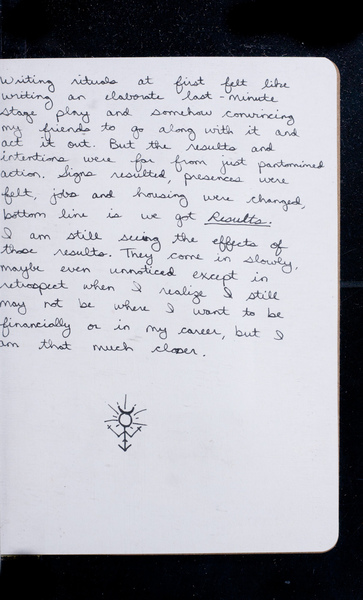 Writing rituals at first felt like
writing an elaborate last-minute
stage play and somehow convincing
my friends to go along with it and
act it out. But the results and
intentions were far from just pantomimed
action. Signs resulted, presences were
felt, jobs and housing were changed,
bottom line is we got Results.
I am still seeing the effects of
those results. They come in slowly,
maybe even unnoticed except in
retrospect when I realize I still
may not be where I want to be
financially or in my career, but I
am that much closer.